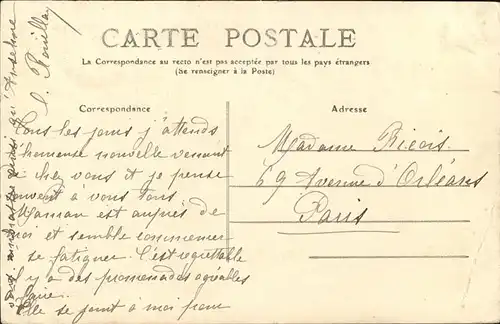 CARTE POSTALE
La Correspondance au recto n'est pas acceptée par tous les pays étrangers
(Se renseigner à la Poste)
Correspondance
Adresse
Tous les jours j'attends
nouvelle venant
de chez vous et je pense
souvent à vous tous
Maman est auprès de
moi et semble commencer
se fatiguer. C'est regrettable
il y a des promenades agréables
faire
Elle se joint à moi pour
vous
ainsi qu'Anselme
Madame Ricois
69 Avenue d'Orléans
Paris